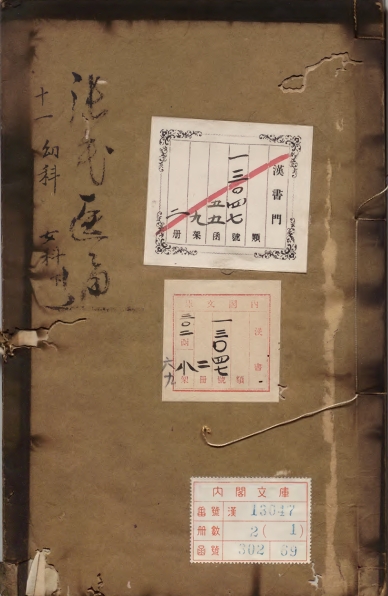 張氏医通
十一 幼科 女科
漢書門
類
一三〇四七號
五五函
九架
二册
内閣文庫
漢書
類
一三〇四七號
二册
三〇二函
六九架
内閣文庫
番號 漢 13047
册數 2(1)
函號 302 69